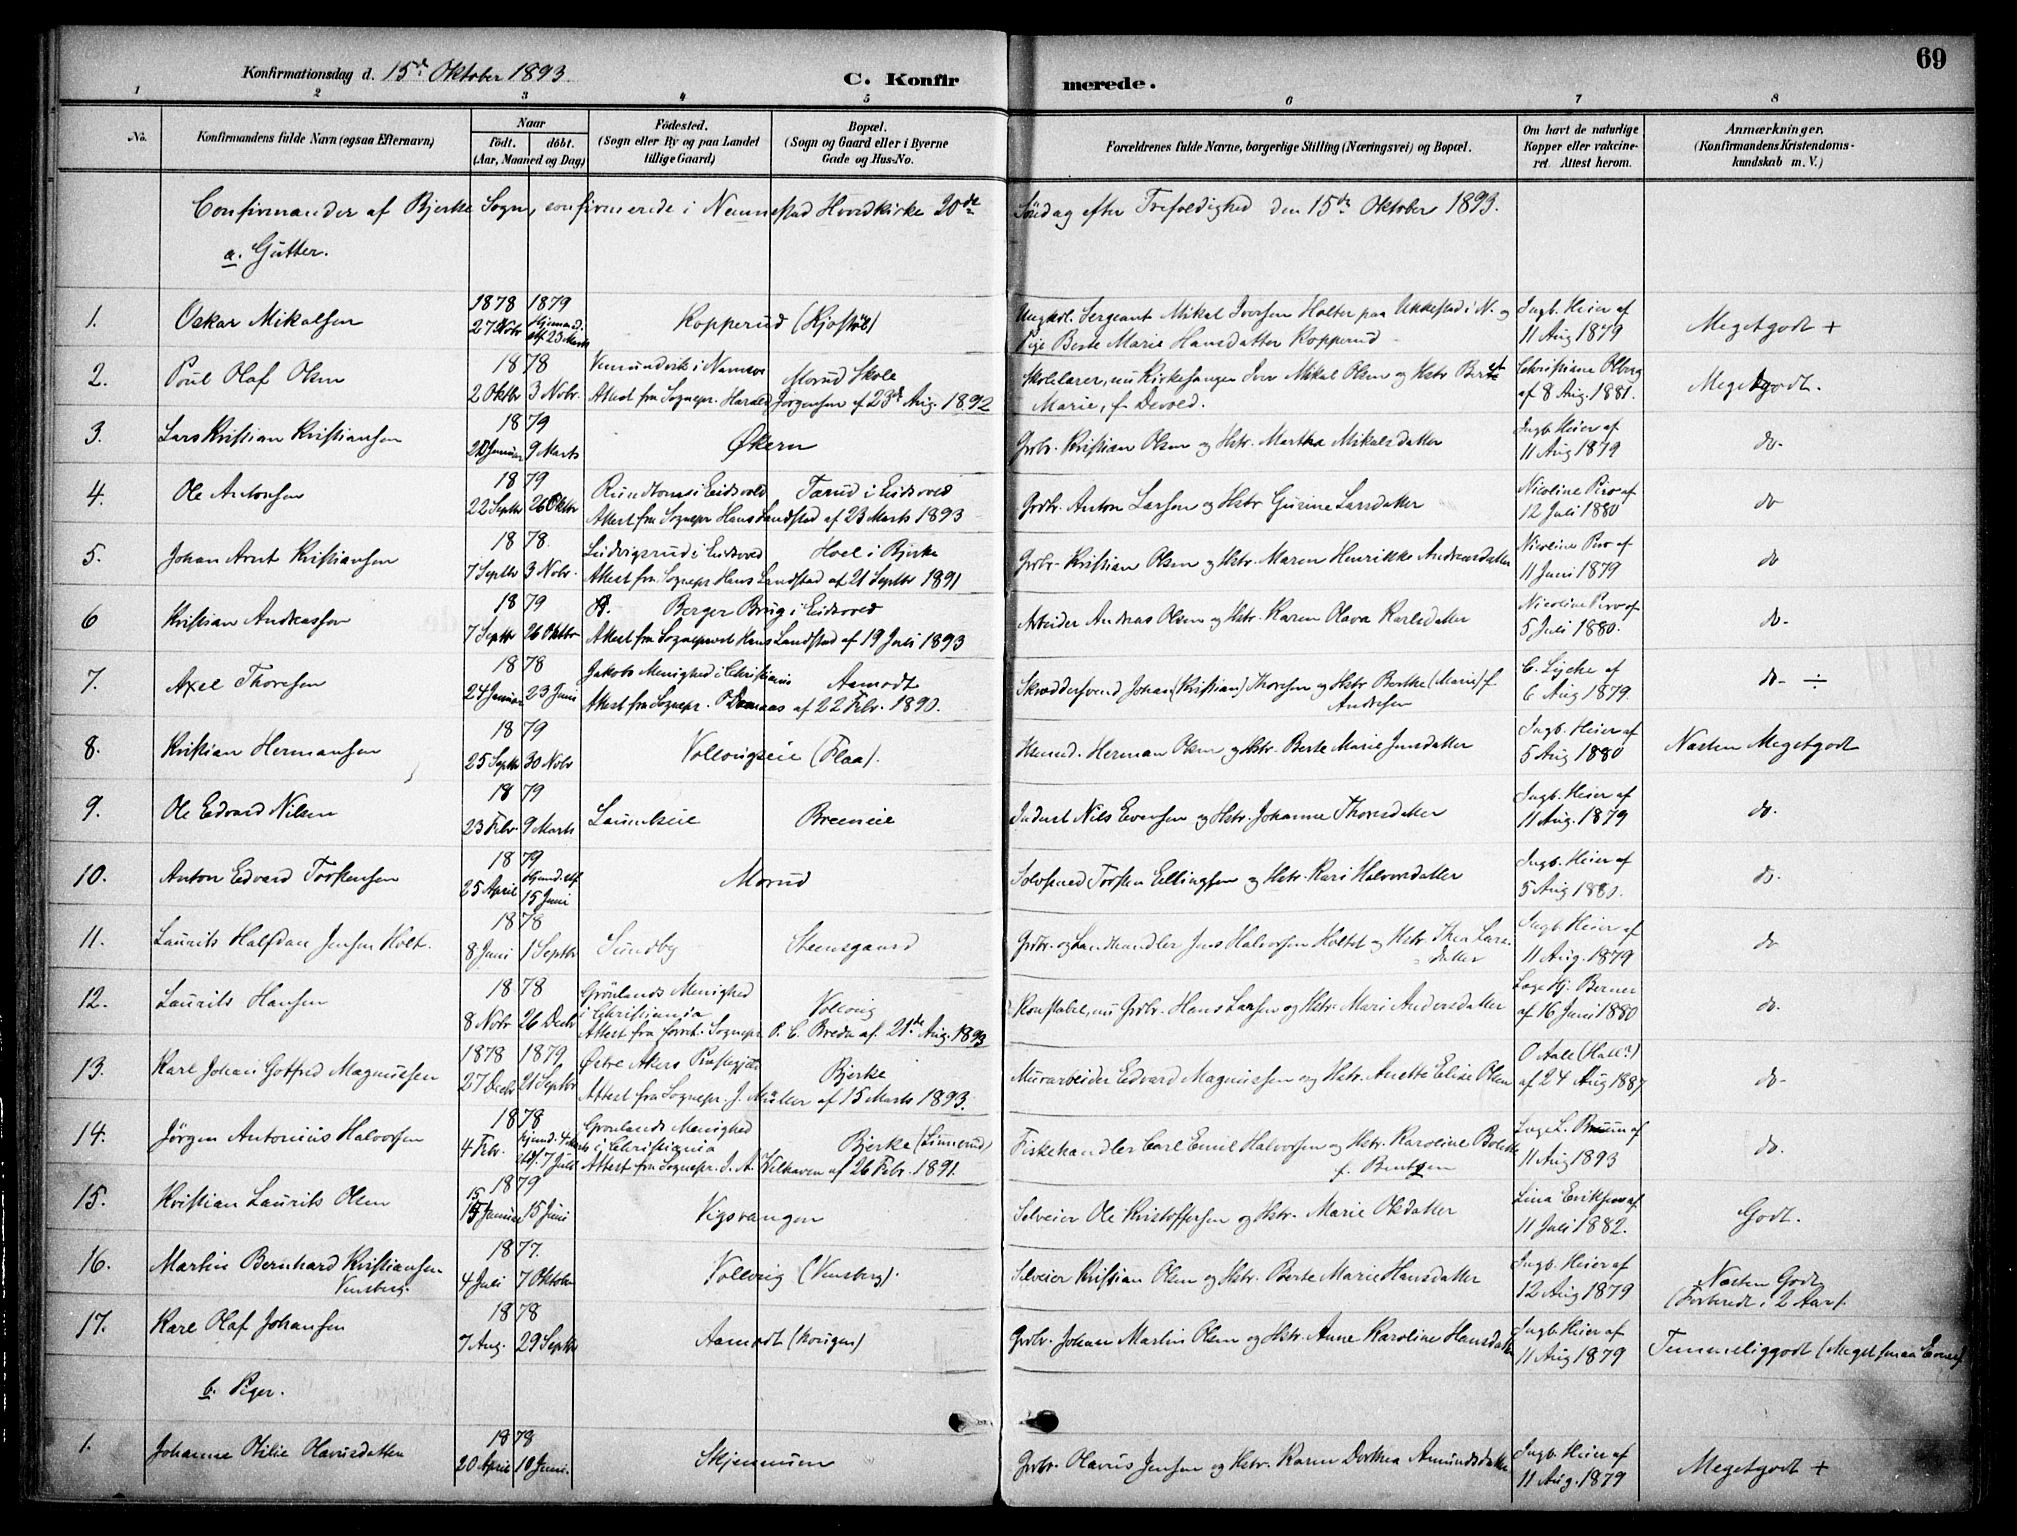 69
Konfirmationsdag d. 15de Oktober 1893.
C. Konfirmerede.
1 2 3 4 5 6 7 8
No.
Konfirmandens fulde Navn (ogsaa Efternavn)
Naar
født. døbt.
(Aar, Maaned og Dag)
Fødested.
(Sogn eller By og paa Landet
tillige Gaard)
Bopæl.
(Sogn og Gaard eller i Byerne
Gade og Hus-No.
Forældrenes fulde Navne, borgerlige Stilling (Næringsvei) og Bopæl.
Om havt de naturlige
Kopper eller vakcine-
ret. Attest herom.
Anmærkninger.
(Konfirmandens Kristendoms-
kundskab m. V.)
Confirmander af Bjerke Sogn, confirmerede i Nannestad Hovedkirke 20de Søndag efter Trefoldighed den 15de Oktober 1893.
a. Gutter.
1. Oskar Mikalsen 1878 27 Novbr 1879 Hjemmed. 23 Marts Kopperud (Kjøstøl) Ungkrl. Sergeant Mikal Iversen Holter paa Ukkestad i N. og
Pige Berte Marie Hansdatter Kopperud Ingb. Heier af
11 Aug 1879 Megetgodt +
2. Poul Olaf Olsen 1878 2 Oktbr 3 Novbr. Vemundvik i Namsos Morud Skole
Attest fra Sognepr. Harald Jørgensen af 23de Aug. 1892
Skolelærer, nu Kirkesanger Iver Mikal Olsen og Hstr Berte
Marie, f. Devold. Christiane Olberg
af 8 Aug. 1881. Megetgodt.
3. Lars Kristian Kristiansen 1879 Januar 9 Marts Økern Grbr. Kristian Olsen og Hstr. Martha Mikalsdatter Ingb. Heier af
11 Aug 1879 do.
4. Ole Antonsen 1879 22 Septbr 26 Oktbr Rundtoms i Eidsvold Tærud i Eidsvold
Attest fra Sognepr Hans Landstad af 23 Marts 1893
Grdbr. Anton Larsen og Hstr Gurine Larsdatter Nicoline Piro af
12 Juli 1880 do
5. Johan Arnt Kristiansen 1878. 7 Septbr 3 Nobr. Ludvigsrud i Eidsvold Hoel i Bjerke
Attest fra Sognepr Hans Landstad af 21 Septbr 1891
Grbr. Kristian Olsen og Hstr. Maren Henrikke Andreasdatter Nicoline Piro af
11 Juni 1879 do
6 Kristian Andreassen 1879 7 Septbr 26 Oktbr Berger Brug i Eidsvold
Attest fra Sogneprest Hans Landstad af 19 Juli 1893
Arbeider Andreas Olsen og Hstr. Karen Olava Karlsdatter Nicoline Piro af
5 Juli 1880. do.
7. Axel Thoresen 1878 24 Januar 23 Juni Jakobs Menighed i Christiania Aamodt
Attest fra Sognepr. af 22 Febr. 1890.
Skræddersvend Johan (Kristian) Thoresen og Hstr Berthe (Marie) f.
Andresen C. Lyche af
6 Aug 1879. do. ÷
8. Kristian Hermansen 1879 25 Septbr 30 Nobr Vollaugseie (Flaa). Husmd. Herman Olsen og Hstr. Berte Marie Jensdatter Ingb. Heier af
5 Aug 1880 Næsten Megetgodt
9 Ole Edvard Nilsen 1879 23 Febr. 9 Marts Breeneie Inderst Nils Evensen og Hstr. Johanne Thorsdatter Ingb. Heier af
11 Aug. 1879 do.
10. Anton Edvard Torstensen 1879 25 April 15 Juni Morud Torsten Ellingsen og Hstr. Kari Halvorsdatter Ingb. Heier af
5 Aug do.
11. Laurits Halfdan Jensen Holt. 1878 8 Juni 1 Septbr Sundby Steensgaard Grdbr. og Landhandler Jens Halvorsen Holtet og Hstr. Thea Lars-
datter Ingb Heier af
11 Aug. 1879 do
12. Laurits Hansen 1878 8 Nobr 26 Decbr Grønlands Menighed
i Christiania Vollaug
Attest fra forrt. Sognepr P. C. Breda af 21de Aug. 1893
Konstabel, nu Grdbr. Hans Larsen og Hstr. Mari Andersdatter Læge Hj. Berner
af 16 Juni 1880 do.
13. Karl Johan Gotfred Magnussen 1878 27 Decbr 1879 21 Septbr Østre Akers Præstegjæld Bjerke
Attest fra Sognepr. J. Müller af 15 Marts 1893.
Murarbeider Edvard Magnussen og Hstr Anette Elise Olsen O Aall (Hall?)
af 24 Aug 1887 do.
14. Jørgen Antonius Halvorsen 1878 4 Febr. 7 Juli Grønlands Menighed
i Christiania Bjerke (Linnerud)
Attest fra Sognepr. J. A. Vilhaven af 26 Febr. 1891.
Fiskehandler Carl Emil Halvorsen og Hstr. Karoline Bolette
f. Bentzen Læge L. Bruun af
11 Aug 1893 do.
15. Kristian Laurits Olsen 1879 15 Januar 15 Juni Vigsvangen Selveier Ole Kristoffersen og Hstr. Marie Olsdatter Lina Eriksen af
11 Juli 1882. Godt.
16. Martin Bernhard Kristiansen
Vensberg. 1877. 4 Juli 7 Oktober Vollaug (Vensberg). Selveier Kristian Olsen og Hstr. Berte Marie Hansdatter Ingb. Heier af
12 Aug 1879 Næsten Godt
(Forberedt i 2 Aar).
17. Karl Olaf Johansen 1878 7 Aug. 29 Septbr Aamodt Grbr. Johan Martin Olsen og Hstr. Anne Karoline Hansdatter Ingb. Heier af
11 Aug 1879 Temmeliggodt (Meget smaa Evner)
b. Piger.
1. Johanne Otilie Olavusdatter 1878 20 April 10 Juni. Skjennum Grbr. Olavus Jensen og Hstr. Karen Dorthea Amundsdatter Ingb. Heier af
11 Aug. 1879 Megetgodt +